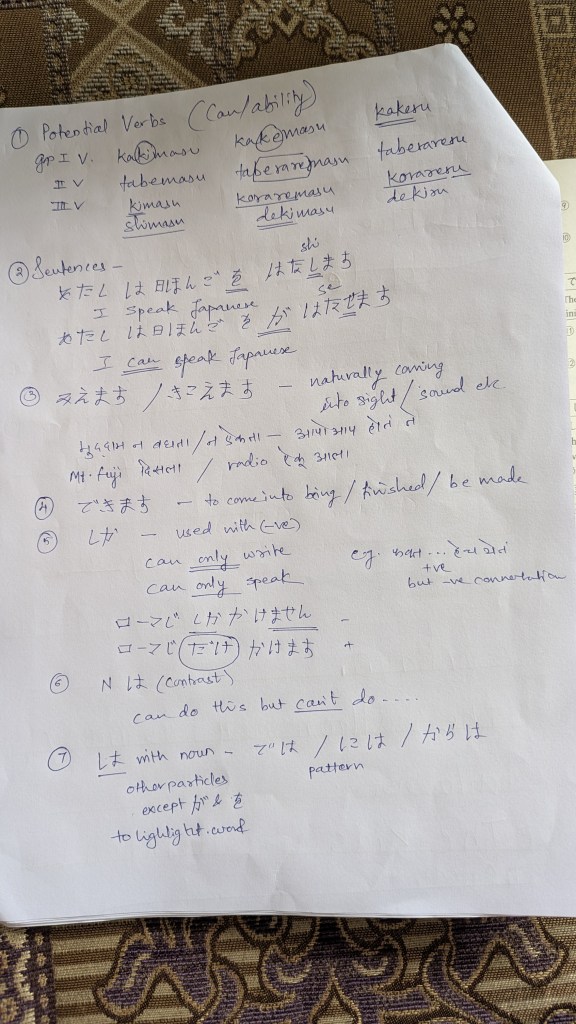 ① Potential Verbs (Can/ability)
gp I V. kakimasu kakemasu kakeru
II V tabemasu taberaremasu taberareru
III V kimasu koraremasu korareru
shimasu dekimasu dekiru
② Sentences -
shi
わたし は 日ほんご を はなします
I speak Japanese
se
わたし は 日ほんご を が はなせます
I can speak Japanese
③ みえます / きこえます - naturally coming
into sight / sound etc
Mt. fuji दिसला / radio ऐकू आला
④ できます - to come into being / finished / be made
⑤ しか - used with (-ve)
can only write
can only speak
eg. फक्त ... हेच येतं
+ve
but -ve connotation
ローマじ しか かけません -
ローマじ だけ かけます +
⑥ N は (contrast)
can do this but can't do ....
⑦ は with noun - では / には / からは
other particles pattern
except が & を
to highlight word